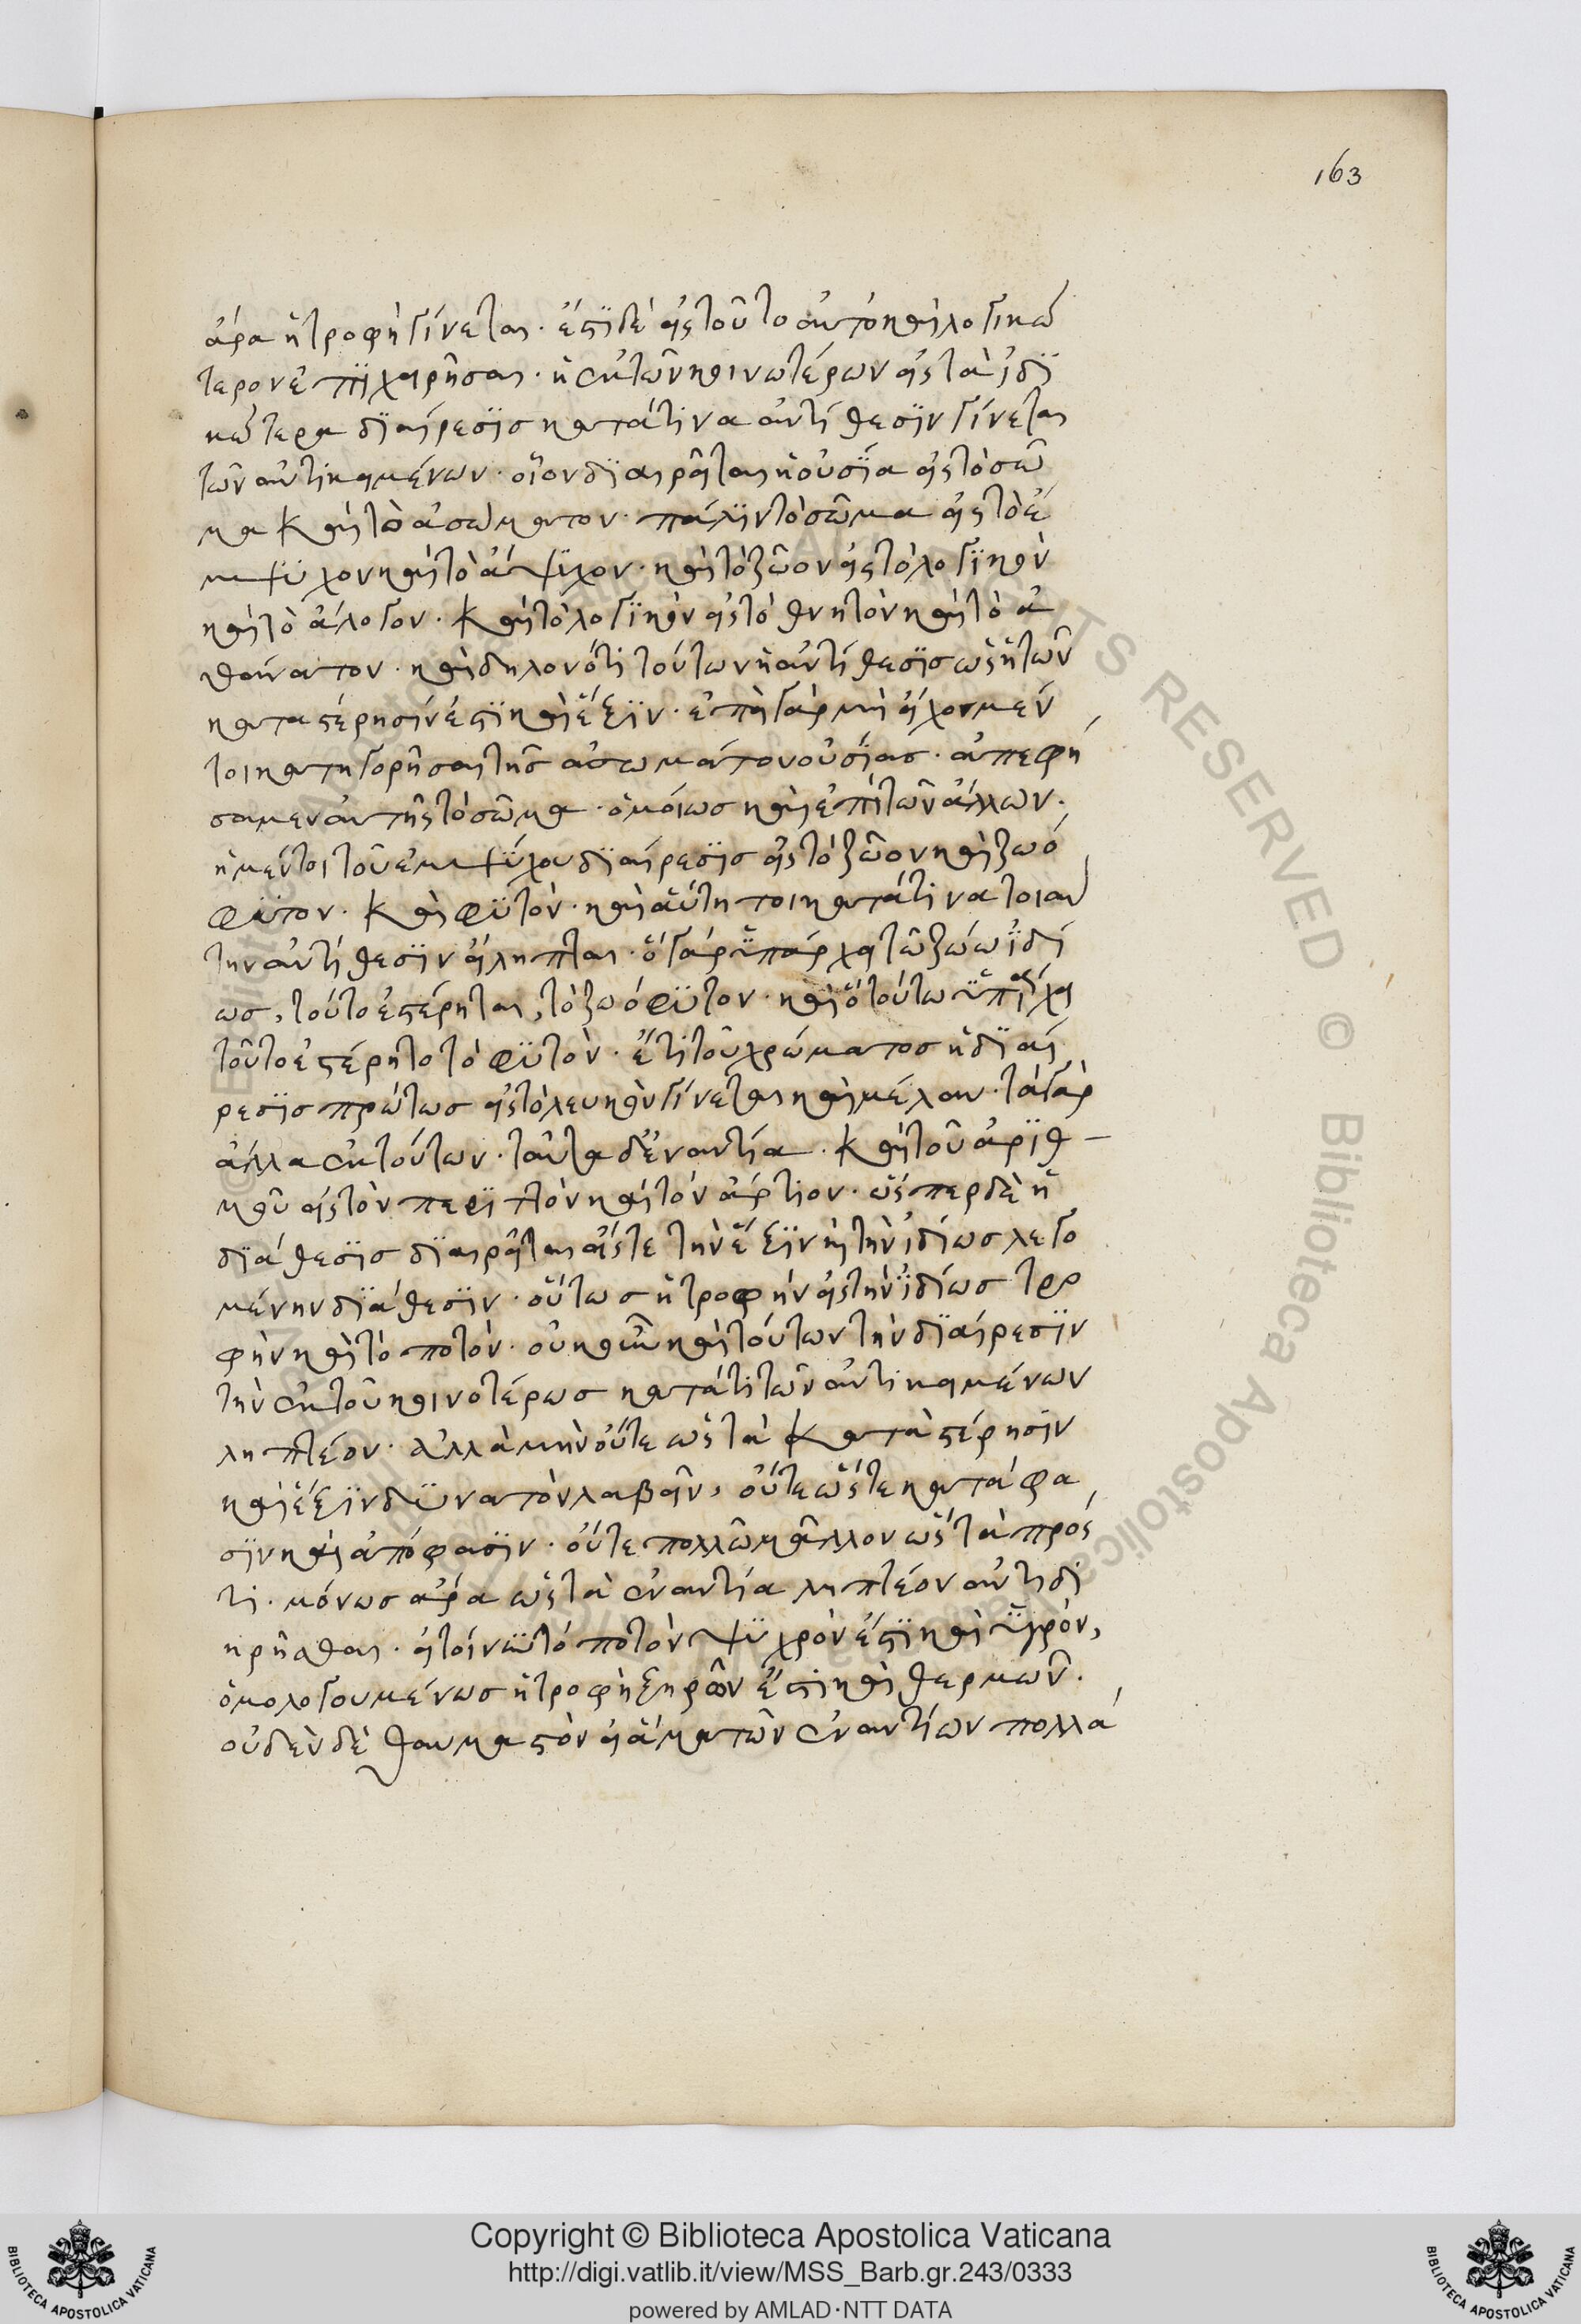 163
ἄρα ἡ τροφὴ γίνεται. ἔστι δὲ εἰς τοῦτο αὐτὸ καὶ λογικώ
τερον ἐπιχειρῆσαι. ἡ ἐκ τῶν κοινωτέρων εἰς τὰ ἰδι
κώτερα διαίρεσις κατά τινα ἀντίθεσιν γίνεται
τῶν ἀντικειμένων. οἷον διαιρεῖται ἡ οὐσία εἰς τὸ σῶ
μα καὶ τὸ ἀσώματον. πάλιν τὸ σῶμα εἰς τὸ ἔ
μψυχον καὶ τὸ ἄψυχον. καὶ τὸ ζῶον εἰς τὸ λογικὸν
καὶ τὸ ἄλογον. καὶ τὸ λογικὸν εἰς τὸ θνητὸν καὶ τὸ ἀ
θάνατον. καὶ δηλονότι τούτων ἡ ἀντίθεσις ὡς ἡ τῶν
κατὰ στέρησίν ἐστι καὶ ἕξιν. ἐπεὶ γὰρ μὴ εἴχομέν
τοι κατηγορῆσαι τῆς ἀσωμάτου οὐσίας. ἀπεφή
σαμεν αὐτῆς τὸ σῶμα. ὁμοίως καὶ ἐπὶ τῶν ἄλλων.
ἡ μέντοι τοῦ ἐμψύχου διαίρεσις εἰς τὸ ζῶον καὶ ζωό
φυτον. καὶ φυτὸν. καὶ αὕτη τοι κατά τινα τοιαύ
την ἀντίθεσιν εἴληπται. ὃ γὰρ ὑπάρχει τῷ ζώῳ ἰδί
ως, τοῦτο ἐστέρηται, τὸ ζωόφυτον. καὶ ὃ τούτω ὑπάρχει
τοῦτο ἐστέρητο τὸ φυτὸν. ἔτι τοῦ χρώματος ἡ διαί
ρεσις πρώτως εἰς τὸ λευκὸν γίνεται καὶ μέλαν. τὰ γὰρ
ἄλλα ἐκ τούτων. ταῦτα δ' ἐναντία. καὶ τοῦ ἀριθ
μοῦ εἰς τὸν περιττὸν καὶ τὸν ἄρτιον. ὥσπερ δὲ ἡ
διάθεσις διαιρεῖται εἴς τε τὴν ἕξιν ἢ τὴν ἰδίως λεγο
μένην διάθεσιν. οὕτως ἡ τροφὴν εἰς τὴν ἰδίως τρο
φὴν καὶ τὸ ποτὸν. οὐκοῦν καὶ τούτων τὴν διαίρεσιν
τὴν ἐκ τοῦ κοινοτέρως κατά τι τῶν ἀντικειμένων
ληπτέον. ἀλλὰ μὴν οὔτε ὡς τὰ κατὰ στέρησιν
καὶ ἕξιν δυνατὸν λαβεῖν, οὔτε ὥς τε κατάφα
σιν καὶ ἀπόφασιν. οὔτε πολλῶ μᾶλλον ὡς τὰ πρός
τι. μόνως ἄρα ὡς τὰ ἐναντία ληπτέον ἀντιδι
ηρῆσθαι. εἰ τοίνυν τὸ ποτὸν ψυχρὸν ἐστι καὶ ὑγρὸν,
ὁμολογουμένως ἡ τροφὴ ξηρῶν ἔστι καὶ θερμῶν.
οὐδὲν δὲ θαυμαστὸν εἰ ἅμα τῶν ἐναντίων πολλά
Copyright © Biblioteca Apostolica Vaticana
http://digi.vatlib.it/view/MSS_Barb.gr.243/0333
powered by AMLAD·NTT DATA